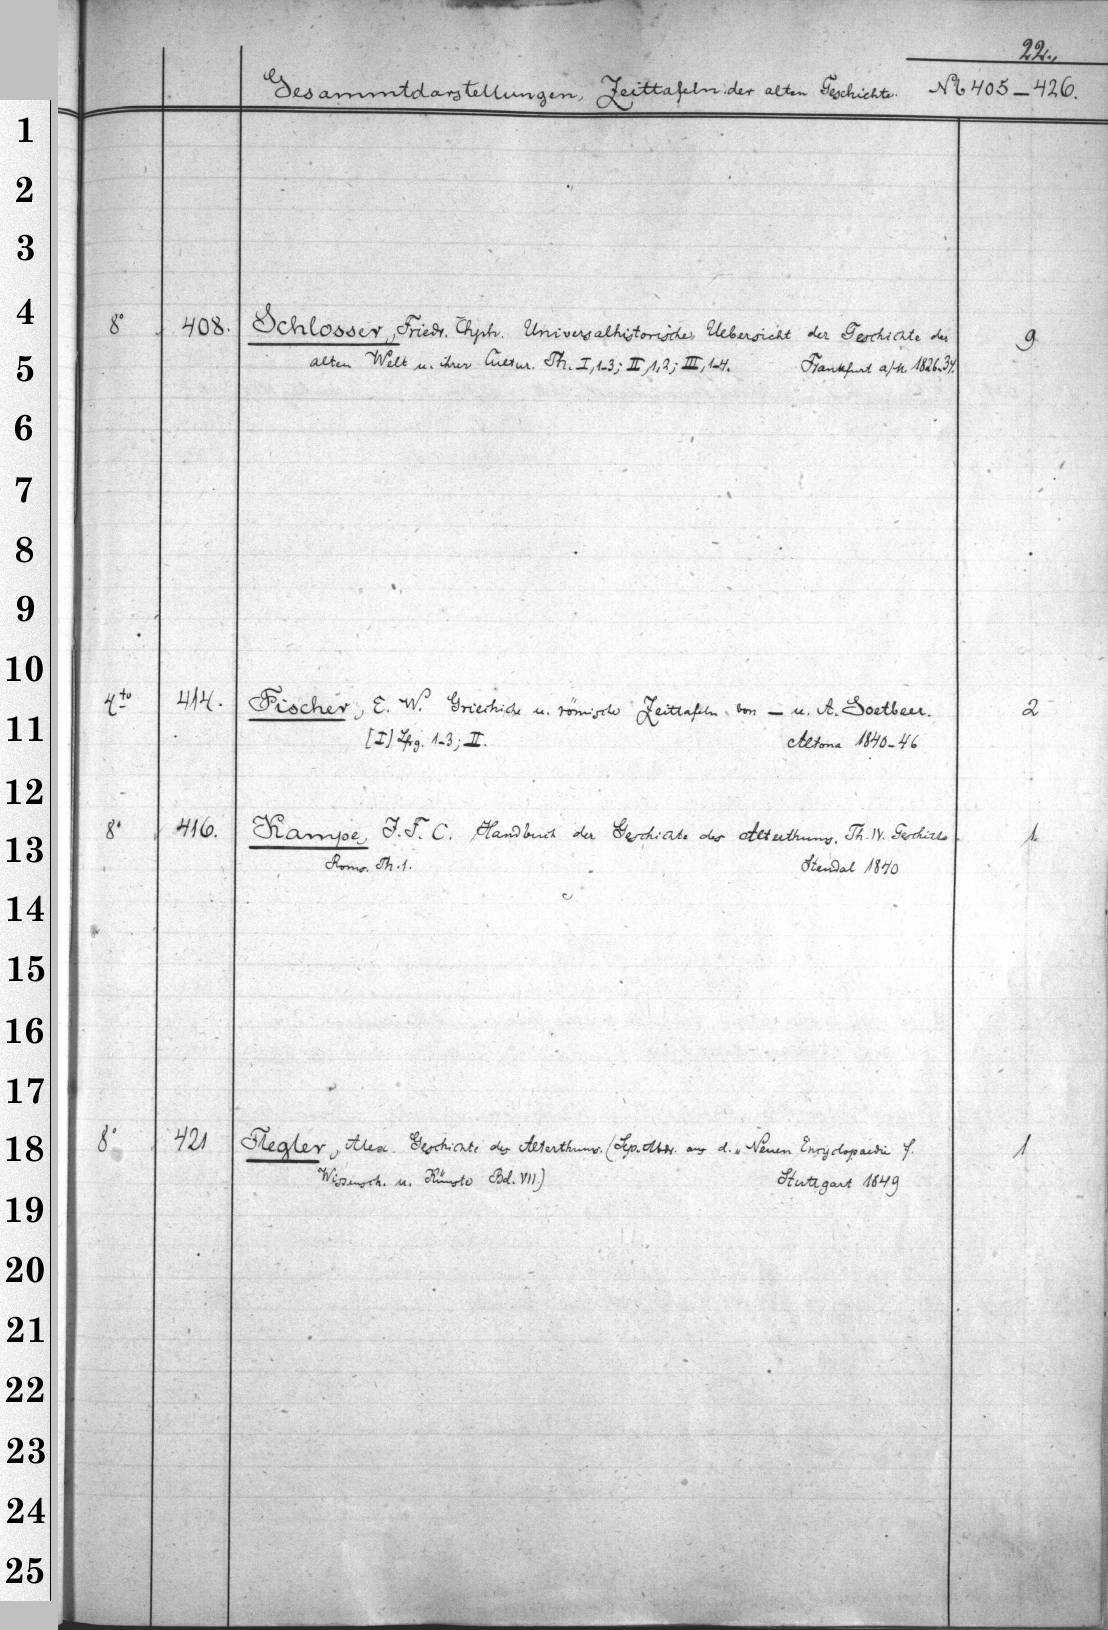 22.
Gesammtdarstellungen, Zeittafeln der alten Geschichte. No 405–426.
1
2
3
4
8° 408. Schlosser, Friedr. Chph. Universalhistorische Uebersicht der Geschichte der 9
alten Welt u. ihrer Cultur. Th. I,1-3; II,1,2; III,1-4. Frankfurt a/M. 1826-34.
5
6
7
8
9
10
4to 414. Fischer, E. W. Griechische u. römische Zeittafeln von — u. A. Soetbeer. 2
11
[I] Lfrg. 1-3; II. Altona 1840-46
12
8° 416. Kampe, J. F. C. Handbuch der Geschichte des Alterthums. Th. IV. Geschichte 1
13
Roms. Th. 1. Stendal 1840
14
15
16
17
18
8° 421 Flegler, Alex. Geschichte des Alterthums. (Sep. Abdr. aus d. „Neuen Encyclopaedie f. 1
Wissensch. u. Künste Bd. VII.) Stuttgart 1849
19
20
21
22
23
24
25